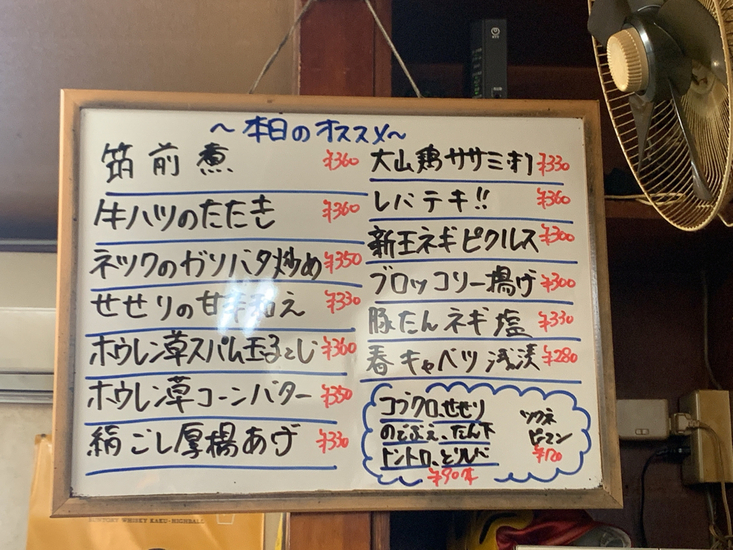 〜本日のオススメ〜
筑前煮 ¥360
牛ハツのたたき ¥360
ネックのガリバタ炒め ¥350
せせりの甘辛和え ¥330
ホウレン草スパム玉子とじ ¥360
ホウレン草コーンバター ¥350
絹ごし厚揚あげ ¥330
大山鶏ササミ ¥330
レバテキ!! ¥360
新玉ネギピクルス ¥300
ブロッコリー揚げ ¥300
豚たんネギ塩 ¥330
春キャベツ浅漬 ¥280
コブクロ、せせり
のどぶえ、たん下
トントロ、とりレバ
¥90本
ツクネ
ピーマン
¥120
SUNTORY WHISKY KAKU-HIGHBALL